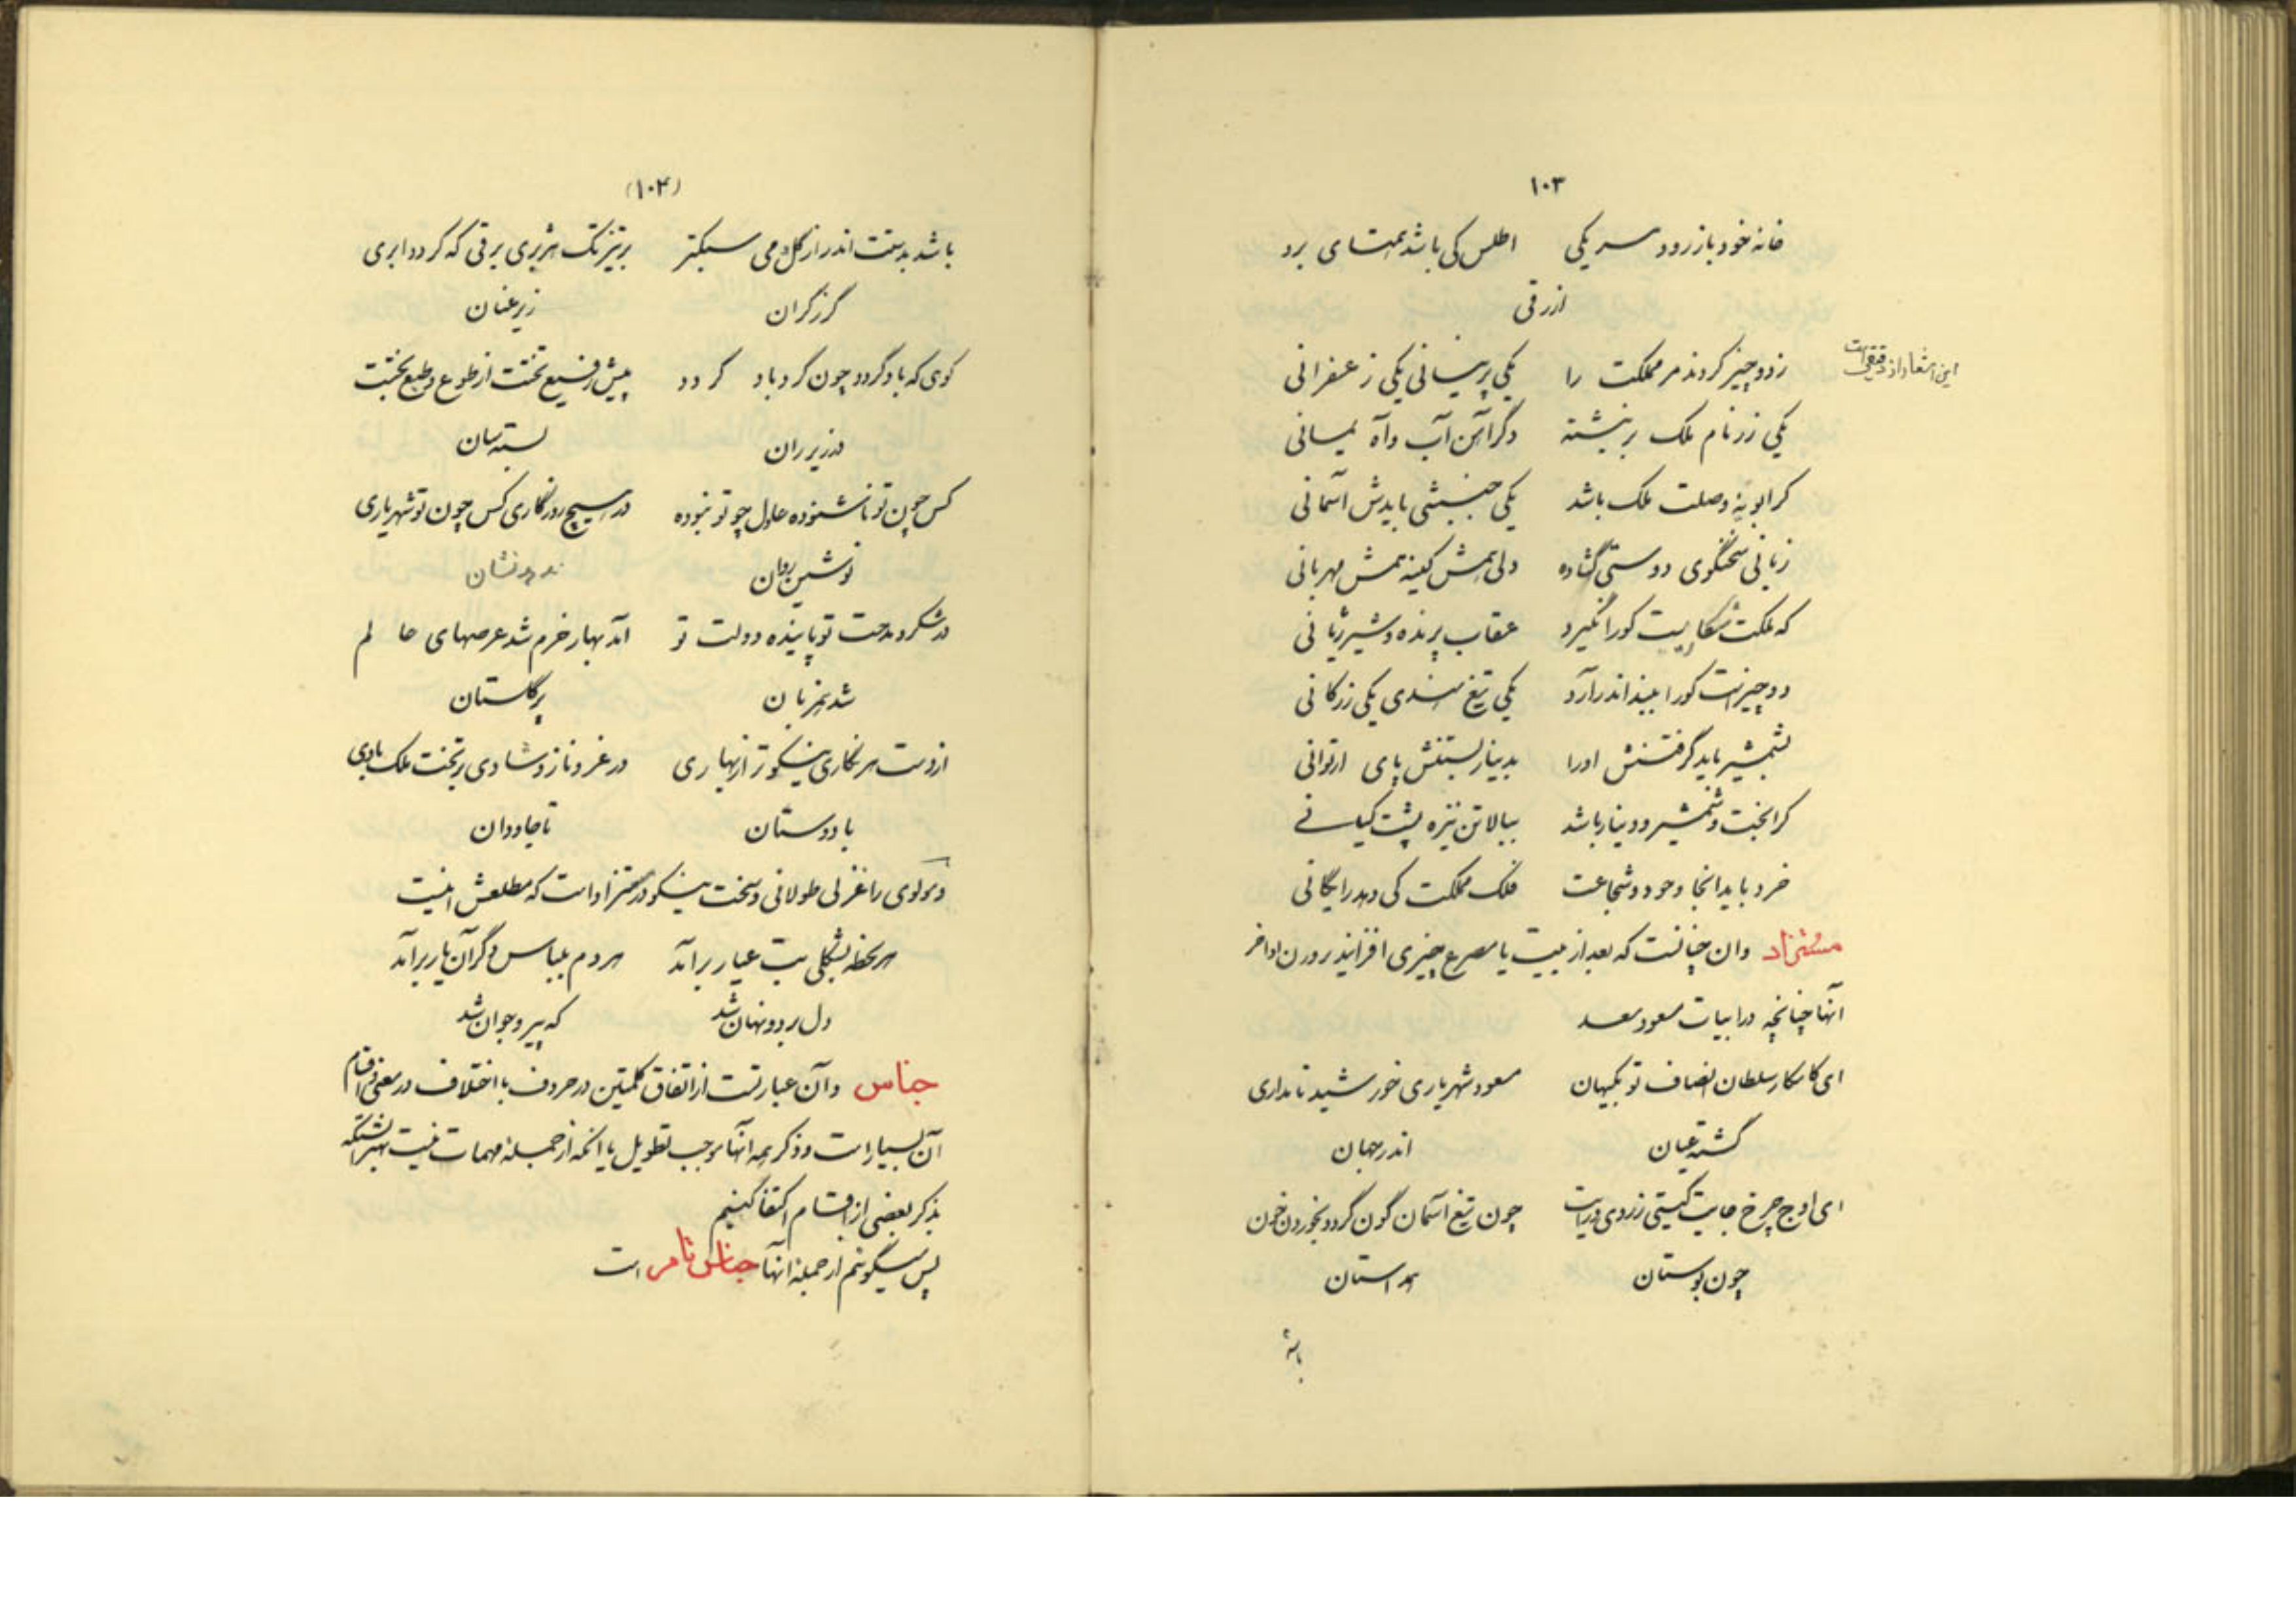 ۱۰۳
خانه خود باز رود سر یکی اطلس کی باشد همتای برد
ازرقی
ز دو چیز گردند مر مملکت را یکی پرنیانی یکی زعفرانی
این اشعار از دقیقی است
یکی زر نام ملک بر نبشته دگر آهن آب داه یمانی
کرا بویه وصلت ملک باشد یکی جنبشی بایدش آسمانی
زبانی سخنگوی و دستی گشاده دلی همش کینه همش مهربانی
که ملکت شکاریست کورا نگیرد عقاب پرنده و شیر ژیانی
دو چیزست کورا ببند اندر آرد یکی تیغ هندی یکی زر کانی
بشمشیر باید گرفتنش اورا بدینار بستنش پای ار توانی
کرا بخت و شمشیر و دینار باشد ببالا تن نیزه پشت کیانی
خرد باید انجا وجود و شجاعت فلک مملکت کی دهد رایگانی
مستزاد وان چنانست که بعد از بیت یا مصرع چیزی افزایند بر وزن اواخر
آنها چنانچه در ابیات مسعود سعد
ای کامکار سلطان انصاف تو بکیهان مسعود شهریاری خورشید نامداری
گشته عیان اندر جهان
ای اوج چرخ جایت گیتی ز روی ورایت چون تیغ آسمان گون گردد بخوردن خون
چون بوستان همداستان
باشد
(۱۰۴)
باشد بدستت اندر از گل دمی سبکتر بر تیز تک هژبری برقی که گردد ابری
گرز گران زیر عنان
کوی که باد گردد چون گرد باد گردد پیش رفیع تختت از طوع و طبع بختت
در زیر ران بسته میان
کس چون تو ناشنوده عادل چو تو نبوده در هیچ روزگاری کس چون تو شهریاری
نوشین روان ندهد نشان
در شکر و مدحت تو پاینده دولت تو آمد بهار خرم شد عرصهای عا لم
شد همزبان پر گلستان
از دست هر نگاری نیکوتر از بهاری در عز و ناز و شادی بر تخت ملک بادی
با دوستان تا جاودان
و مولوی را غزلی طولانی و سخت نیکو در مستزاد است که مطلعش اینست
هر لحظه بشکلی بت عیار برآمد هر دم بلباس دگر آن یار برآمد
دل برد و نهان شد که پیر و جوان شد
جناس و آن عبارتست از اتفاق کلمتین در حروف با اختلاف در معنی و اقسام
آن بسیار است و ذکر همه آنها موجب تطویل با انکه از جمله مهمات نیست بهتر انستکه
بذکر بعضی از اقسام اکتفا کنیم
پس میگوئیم از جمله آنها جناس تامر است